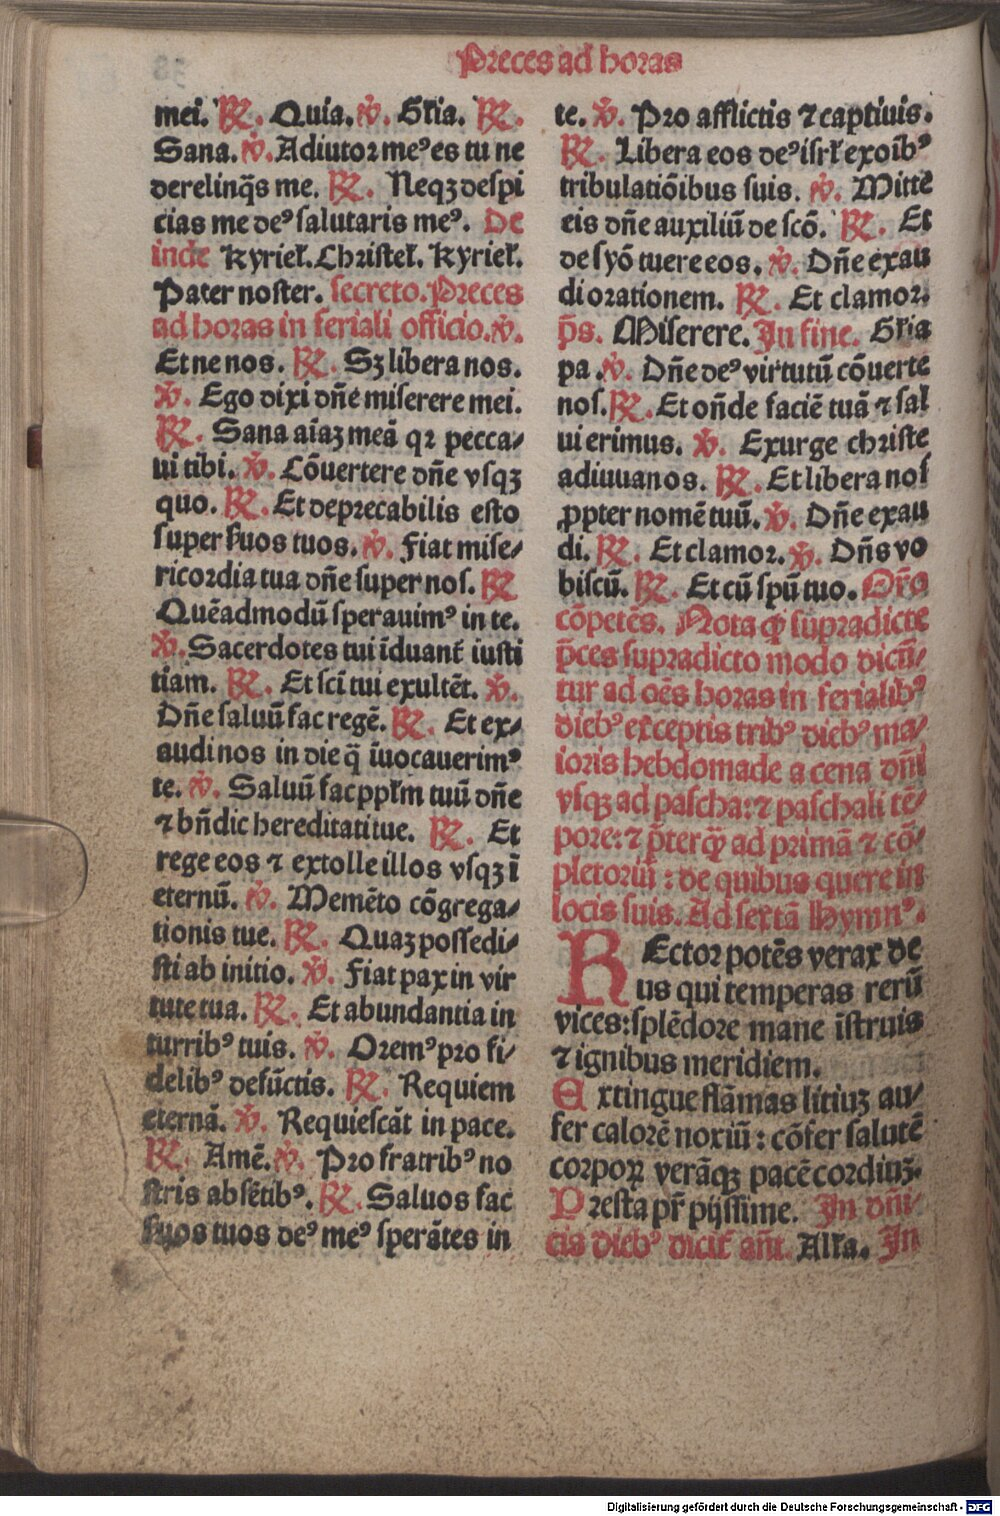 Preces ad horas
mei. ℟. Quia. ℣. Gl̄ia. ℟.
Sana. ℣. Adiutor meꝰ es tu ne
derelinq̄s me. ℟. Neqꝫ despi
cias me deꝰ salutaris meꝰ. De
inde Kyriel̄. Christel̄. Kyriel̄.
Pater noster. secreto. Preces
ad horas in feriali officio. ℣.
Et ne nos. ℟. Sꝫ libera nos.
℣. Ego dixi dn̄e miserere mei.
℟. Sana aīaꝫ meā qꝛ pecca⸗
ui tibi. ℣. Cōuertere dn̄e vsqꝫ
quo. ℟. Et deprecabilis esto
super s̄uos tuos. ℣. Fiat mise⸗
ricordia tua dn̄e super nos. ℟
Quēadmodū sperauimꝰ in te.
℣. Sacerdotes tui īduant̄ iusti
tiam. ℟. Et sc̄i tui exultēt. ℣.
Dn̄e saluū fac regē. ℟. Et ex⸗
audi nos in die q̄ īuocauerimꝰ
te. ℣. Saluū fac ppl̄m tuū dn̄e
⁊ bn̄dic hereditati tue. ℟. Et
rege eos ⁊ extolle illos vsqꝫ ī
eternū. ℣. Memēto cōgrega⸗
tionis tue. ℟. Quaꝫ possedi⸗
sti ab initio. ℣. Fiat pax in vir
tute tua. ℟. Et abundantia in
turribꝰ tuis. ℣. Oremꝰ pro fi⸗
delibꝰ defūctis. ℟. Requiem
eternā. ℣. Requiescāt in pace.
℟. Amē. ℣. Pro fratribꝰ no
stris absētibꝰ. ℟. Saluos fac
s̄uos tuos deꝰ meꝰ sperātes in
te. ℣. Pro afflictis ⁊ captiuis.
℟. Libera eos deꝰ isrl̄ ex oībꝰ
tribulatiōibus suis. ℣. Mitte
eis dn̄e auxiliū de scō. ℟. Et
de syō tuere eos. ℣. Dn̄e exau
di orationem. ℟. Et clamor.
p̄s. Miserere. In fine. Gl̄ia
pa. ℣. Dn̄e deꝰ virtutū cōuerte
nos. ℟. Et on̄de faciē tuā ⁊ sal
ui erimus. ℣. Exurge christe
adiuua nos. ℟. Et libera nos
ꝓpter nomē tuū. ℣. Dn̄e exau
di. ℟. Et clamor. ℣. Dn̄s vo
biscū. ℟. Et cū spū tuo. Or̄o
cōpetēs. Nota ꝙ supradicte
p̄ces supradicto modo dicū⸗
tur ad oēs horas in ferialibꝰ
diebꝰ exceptis tribꝰ diebꝰ ma⸗
ioris hebdomade a cena dn̄i
vsqꝫ ad pascha: ⁊ paschali tē⸗
pore: ⁊ p̄terꝙ̄ ad primā ⁊ cō⸗
pletoriū: de quibus quere in
locis suis. Ad sextā Hymnꝰ.
REctor potēs verax de
us qui temperas rerū
vices: splēdore mane īstruis
⁊ ignibus meridiem.
Extingue flāmas litiuꝫ au⸗
fer calorē noxiū: cōfer salutē
corpoꝝ verāqꝫ pacē cordiuꝫ.
Presta pr̄ pijssime. In dn̄i⸗
cis diebꝰ dicit̄ an̄t. All̄a. In
Digitalisierung gefördert durch die Deutsche Forschungsgemeinschaft - DFG